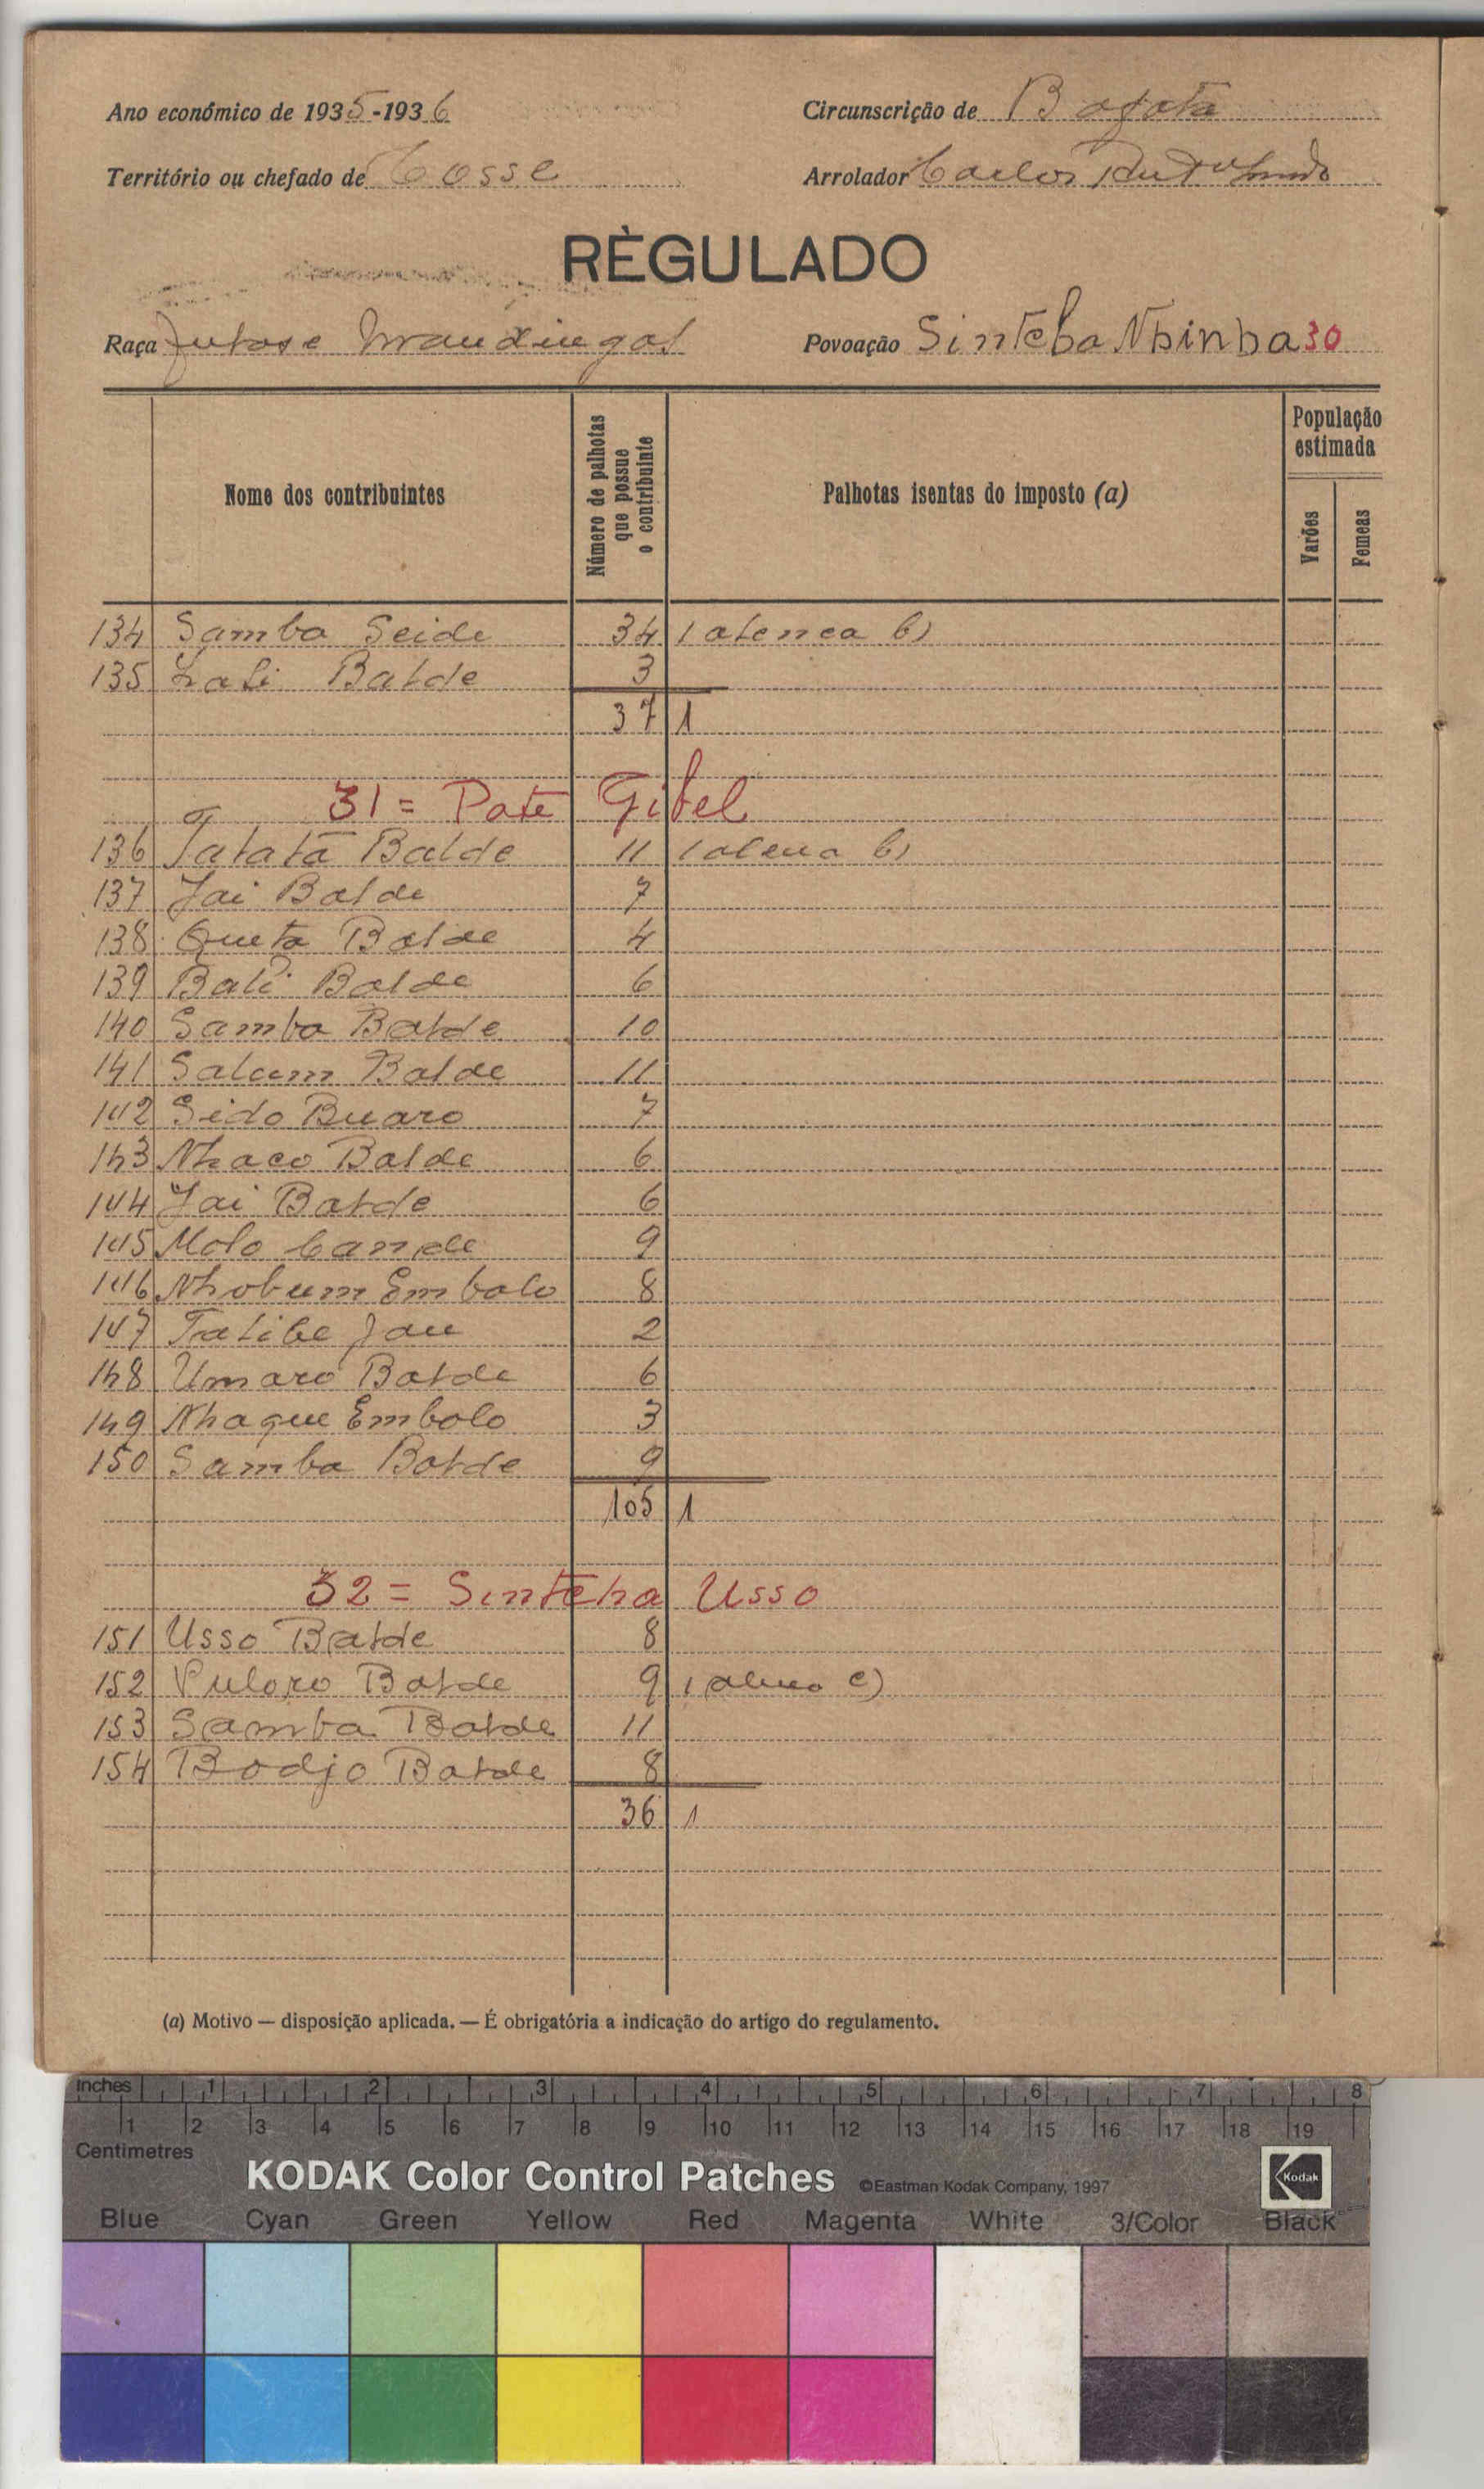 Ano económico de 1935-1936
Circunscrição de Bafatá
Território ou chefado de Cosse
Arrolador Carlos
RÈGULADO
Raça Fulas e Mandingas
Povoação Sinteha Nhinha 30
Nome dos contribuintes
Número de palhotas que possue o contribuinte
Palhotas isentas do imposto (a)
População estimada
Varões
Femeas
134 Samba Seide 34 1 alenea b)
135 Lali Balde 3
37 1
31 = Pate Gibel
136 Tatatá Balde 11 1 alenea b)
137 Jai Balde 7
138 Queta Balde 4
139 Bali Balde 6
140 Samba Balde 10
141 Salum Balde 11
142 Sido Buaro 7
143 Nhaco Balde 6
144 Jai Balde 6
145 Molo Cande 9
146 Nhobum Embalo 8
147 Talibe Jau 2
148 Umaro Balde 6
149 Nhaque Embolo 3
150 Samba Balde 9
105 1
32 = Sinteha Usso
151 Usso Balde 8
152 Puloro Balde 9 1 alinea c)
153 Samba Balde 11
154 Bodjo Balde 8
36 1
(a) Motivo — disposição aplicada. — É obrigatória a indicação do artigo do regulamento.
inches 1 2 3 4 5 6 7 8
1 2 3 4 5 6 7 8 9 10 11 12 13 14 15 16 17 18 19
Centimetres
KODAK Color Control Patches ©Eastman Kodak Company, 1997 Kodak
Blue Cyan Green Yellow Red Magenta White 3/Color Black